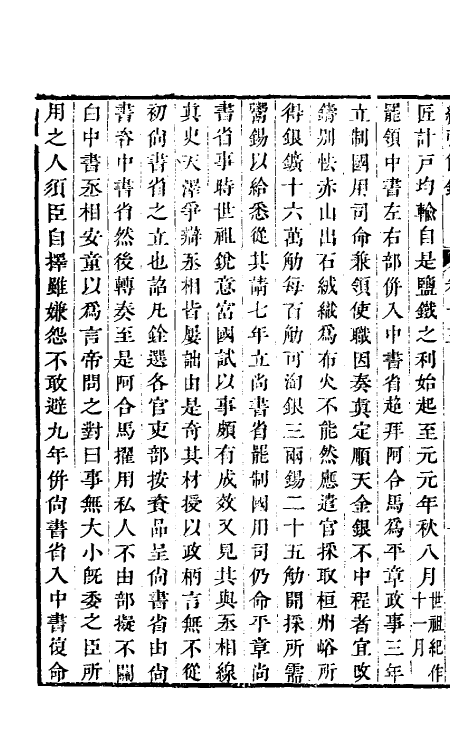 匠計戸均輸自是鹽鐵之利始起至元元年秋八月世祖紀作十一月
罷領中書左右部併入中書省超拜阿合馬爲平章政事三年
立制國用司命兼領使職因奏眞定順天金銀不中程者宜改
鑄別怯赤山出石絨織爲布火不能然應遣官採取桓州峪所
得銀鑛十六萬觔每百觔可淘銀三兩錫二十五觔開採所需
鬻錫以給悉從其請七年立尚書省罷制國用司仍命平章尚
書省事時世祖銳意富國試以事頗有成效又見其與丞相線
眞史天澤爭辯丞相皆屢詘由是奇其材授以政柄言無不從
初尚書省之立也詔凡銓選各官吏部按資品呈尚書省由尚
書咨中書省然後轉奏至是阿合馬擢用私人不由部擬不關
白中書丞相安童以爲言帝問之對曰事無大小旣委之臣所
用之人須臣自擇雖嫌怨不敢避九年併尚書省入中書復命